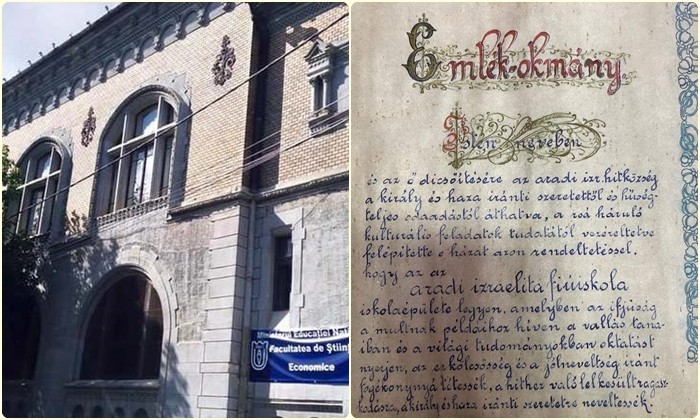 Ministerul Educației Nați
Facultatea de Științ
Economice
Emlék-okmány.
Isten nevében
és az ő dicsőitésére az aradi izr. hitközség
a király és haza iránti szeretettől és hűség-
teljes odaadástól áthatva, a reá háruló
kulturális feladatok tudatától vezéreltetve
felépítette e házat azon rendeltetéssel,
hogy az az
aradi izraelita fiúiskola
iskolaépülete legyen, amelyben az ifjúság
a multnak példáihoz híven a vallás tana-
iban és a világi tudományokban oktatást
nyerjen, az erkölcsösség és a jólneveltség iránt
fogékonynyá tétessék, a hithez való lelkesült ragasz-
kodásra, a király és haza iránti szeretetre neveltessék.